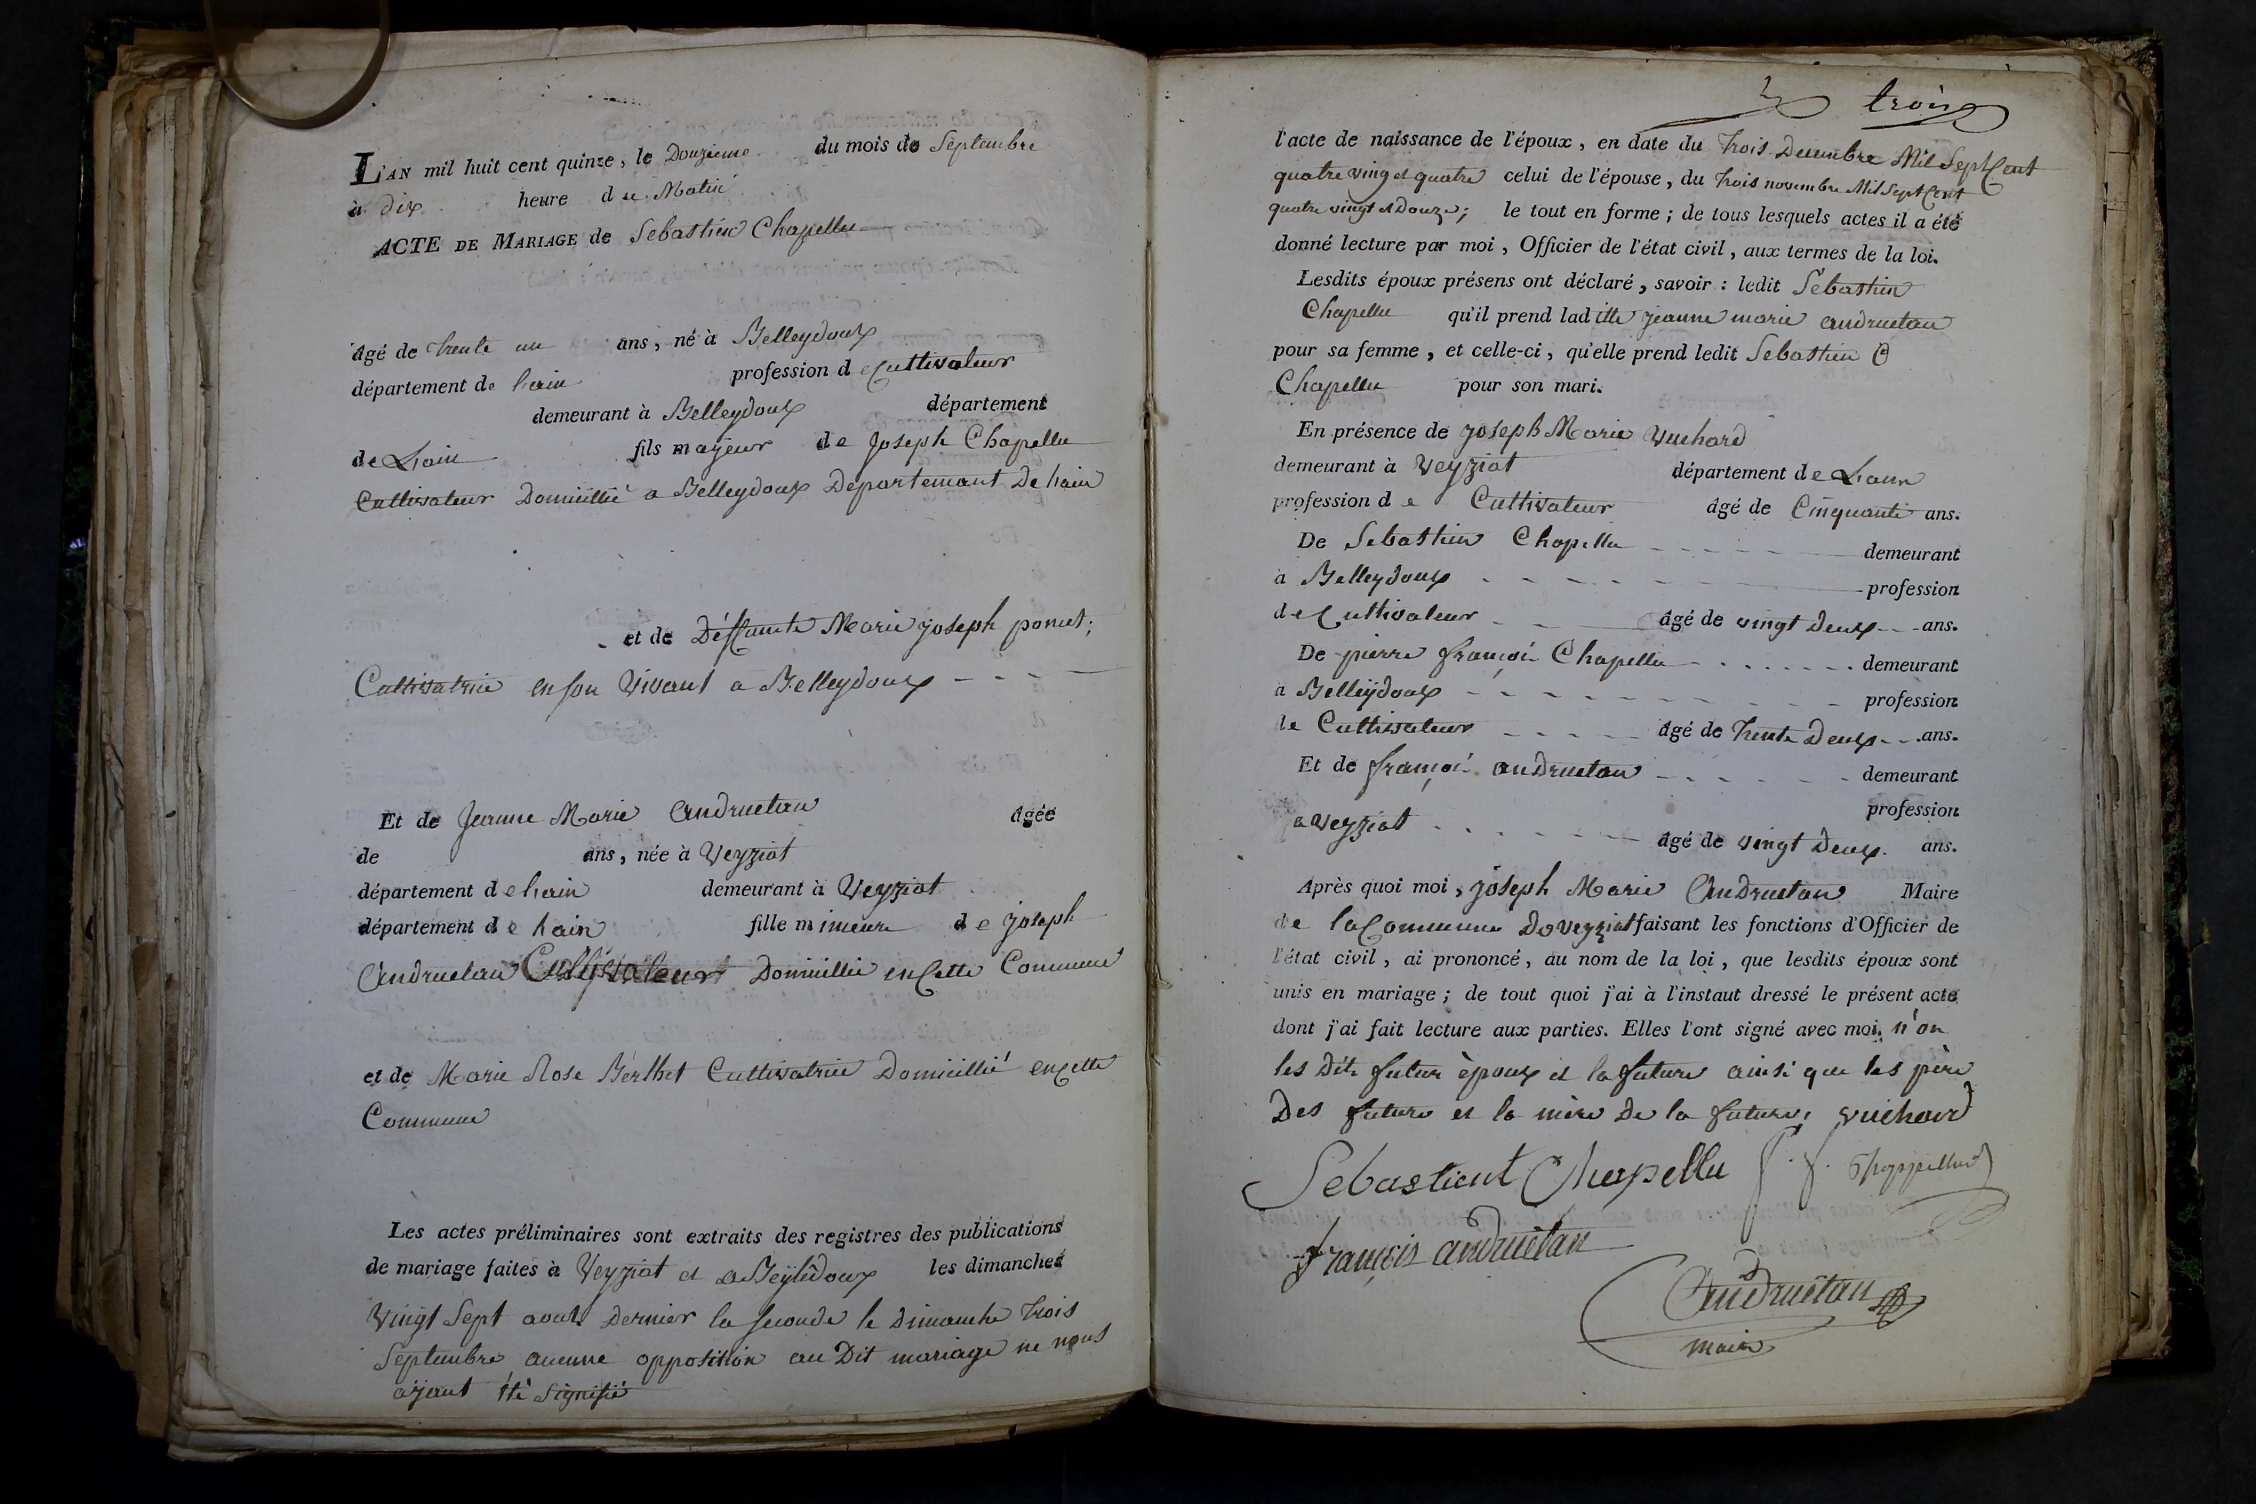 L'AN mil huit cent quinze, le Douzieme du mois de Septembre
à dix heure du Matin
ACTE DE MARIAGE de Sebastien Chapellu
âgé de trente un ans, né à Belleydoux
département de hain profession de Cultivateur
demeurant à Belleydoux département
de Lain fils majeur de Joseph Chapellu
Cultivateur Domicillié a Belleydoux Departement De hain
et de Déffunte Marie joseph poncet;
Cultivatrice en son Vivant a Belleydoux
Et de Jeanne Marie Andruetan âgée
de ans, née à Veyziat
département de hain demeurant à Veyziat
département de hain fille mineure de joseph
Andruetan Cultivateur Domicillié en Cette Commune
et de Marie Rose Berthet Cultivatrice Domicillié en Cette
Commune
Les actes préliminaires sont extraits des registres des publications
de mariage faites à Veyziat et a Beÿlidoux les dimanches
Vingt Sept aout Dernier la seconde le Dimanche trois
Septembre aucune opposition au Dit mariage ne nous
aÿant été signifié
trois
l'acte de naissance de l'époux, en date du trois Decembre Mil Sept Cent
quatre ving et quatre celui de l'épouse, du trois novembre Mil Sept Cent
quatre vingt et Douze; le tout en forme; de tous lesquels actes il a été
donné lecture par moi, Officier de l'état civil, aux termes de la loi.
Lesdits époux présens ont déclaré, savoir: ledit Sebastien
Chapellu qu'il prend laditte jeanne marie andruetan
pour sa femme, et celle-ci, qu'elle prend ledit Sebastien
Chapellu pour son mari.
En présence de joseph Marie Vuchard
demeurant à Veyziat département de Lain
profession de Cultivateur âgé de Cinquante ans.
De Sebastien Chapellu demeurant
a Belleydoux profession
de Cultivateur âgé de vingt Deux ans.
De pierre françoi Chapellu demeurant
a Belleÿdoux profession
de Cultivateur âgé de trente Deux ans.
Et de françoi andruetan demeurant
a Veyziat profession
âgé de vingt Deux ans.
Après quoi moi, joseph Marie Andruetan Maire
de la Commune De Veyziat faisant les fonctions d'Officier de
l'état civil, ai prononcé, au nom de la loi, que lesdits époux sont
unis en mariage; de tout quoi j'ai à l'instaut dressé le présent acte
dont j'ai fait lecture aux parties. Elles l'ont signé avec moi. n'on
les Dits futur époux et la future ainsi que les père
Des future et la mère De la future, vuichard
Sebastient Chapellu
françois andruétan
Andruétan
maire